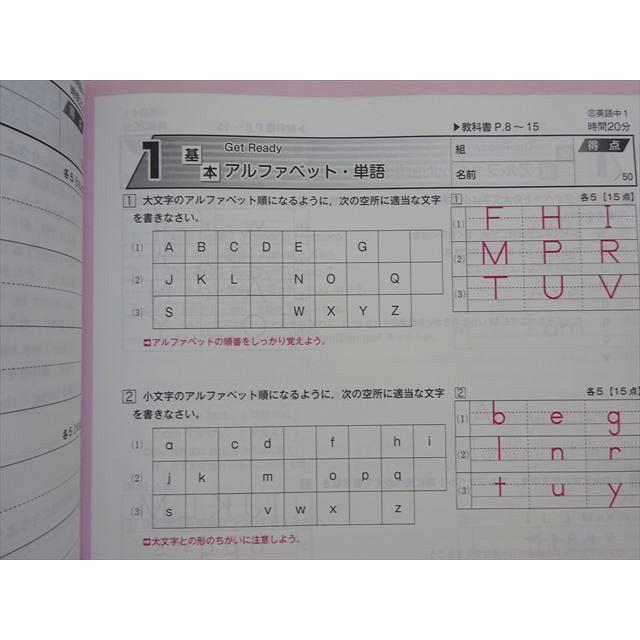 ㋛英語中1
▶教科書 P.8～15
時間20分
1 基本 Get Ready
アルファベット・単語
組
名前
得点
/50
1 大文字のアルファベット順になるように，次の空所に適当な文字
を書きなさい。
(1) A B C D E G
(2) J K L N O Q
(3) S W X Y Z
➡アルファベットの順番をしっかり覚えよう。
1 各5【15点】
(1) F H I
(2) M P R
(3) T U V
2 小文字のアルファベット順になるように，次の空所に適当な文字
を書きなさい。
(1) a c d f h i
(2) j k m o p q
(3) s v w x z
➡大文字との形のちがいに注意しよう。
2 各5【15点】
(1) b e g
(2) l n r
(3) t u y